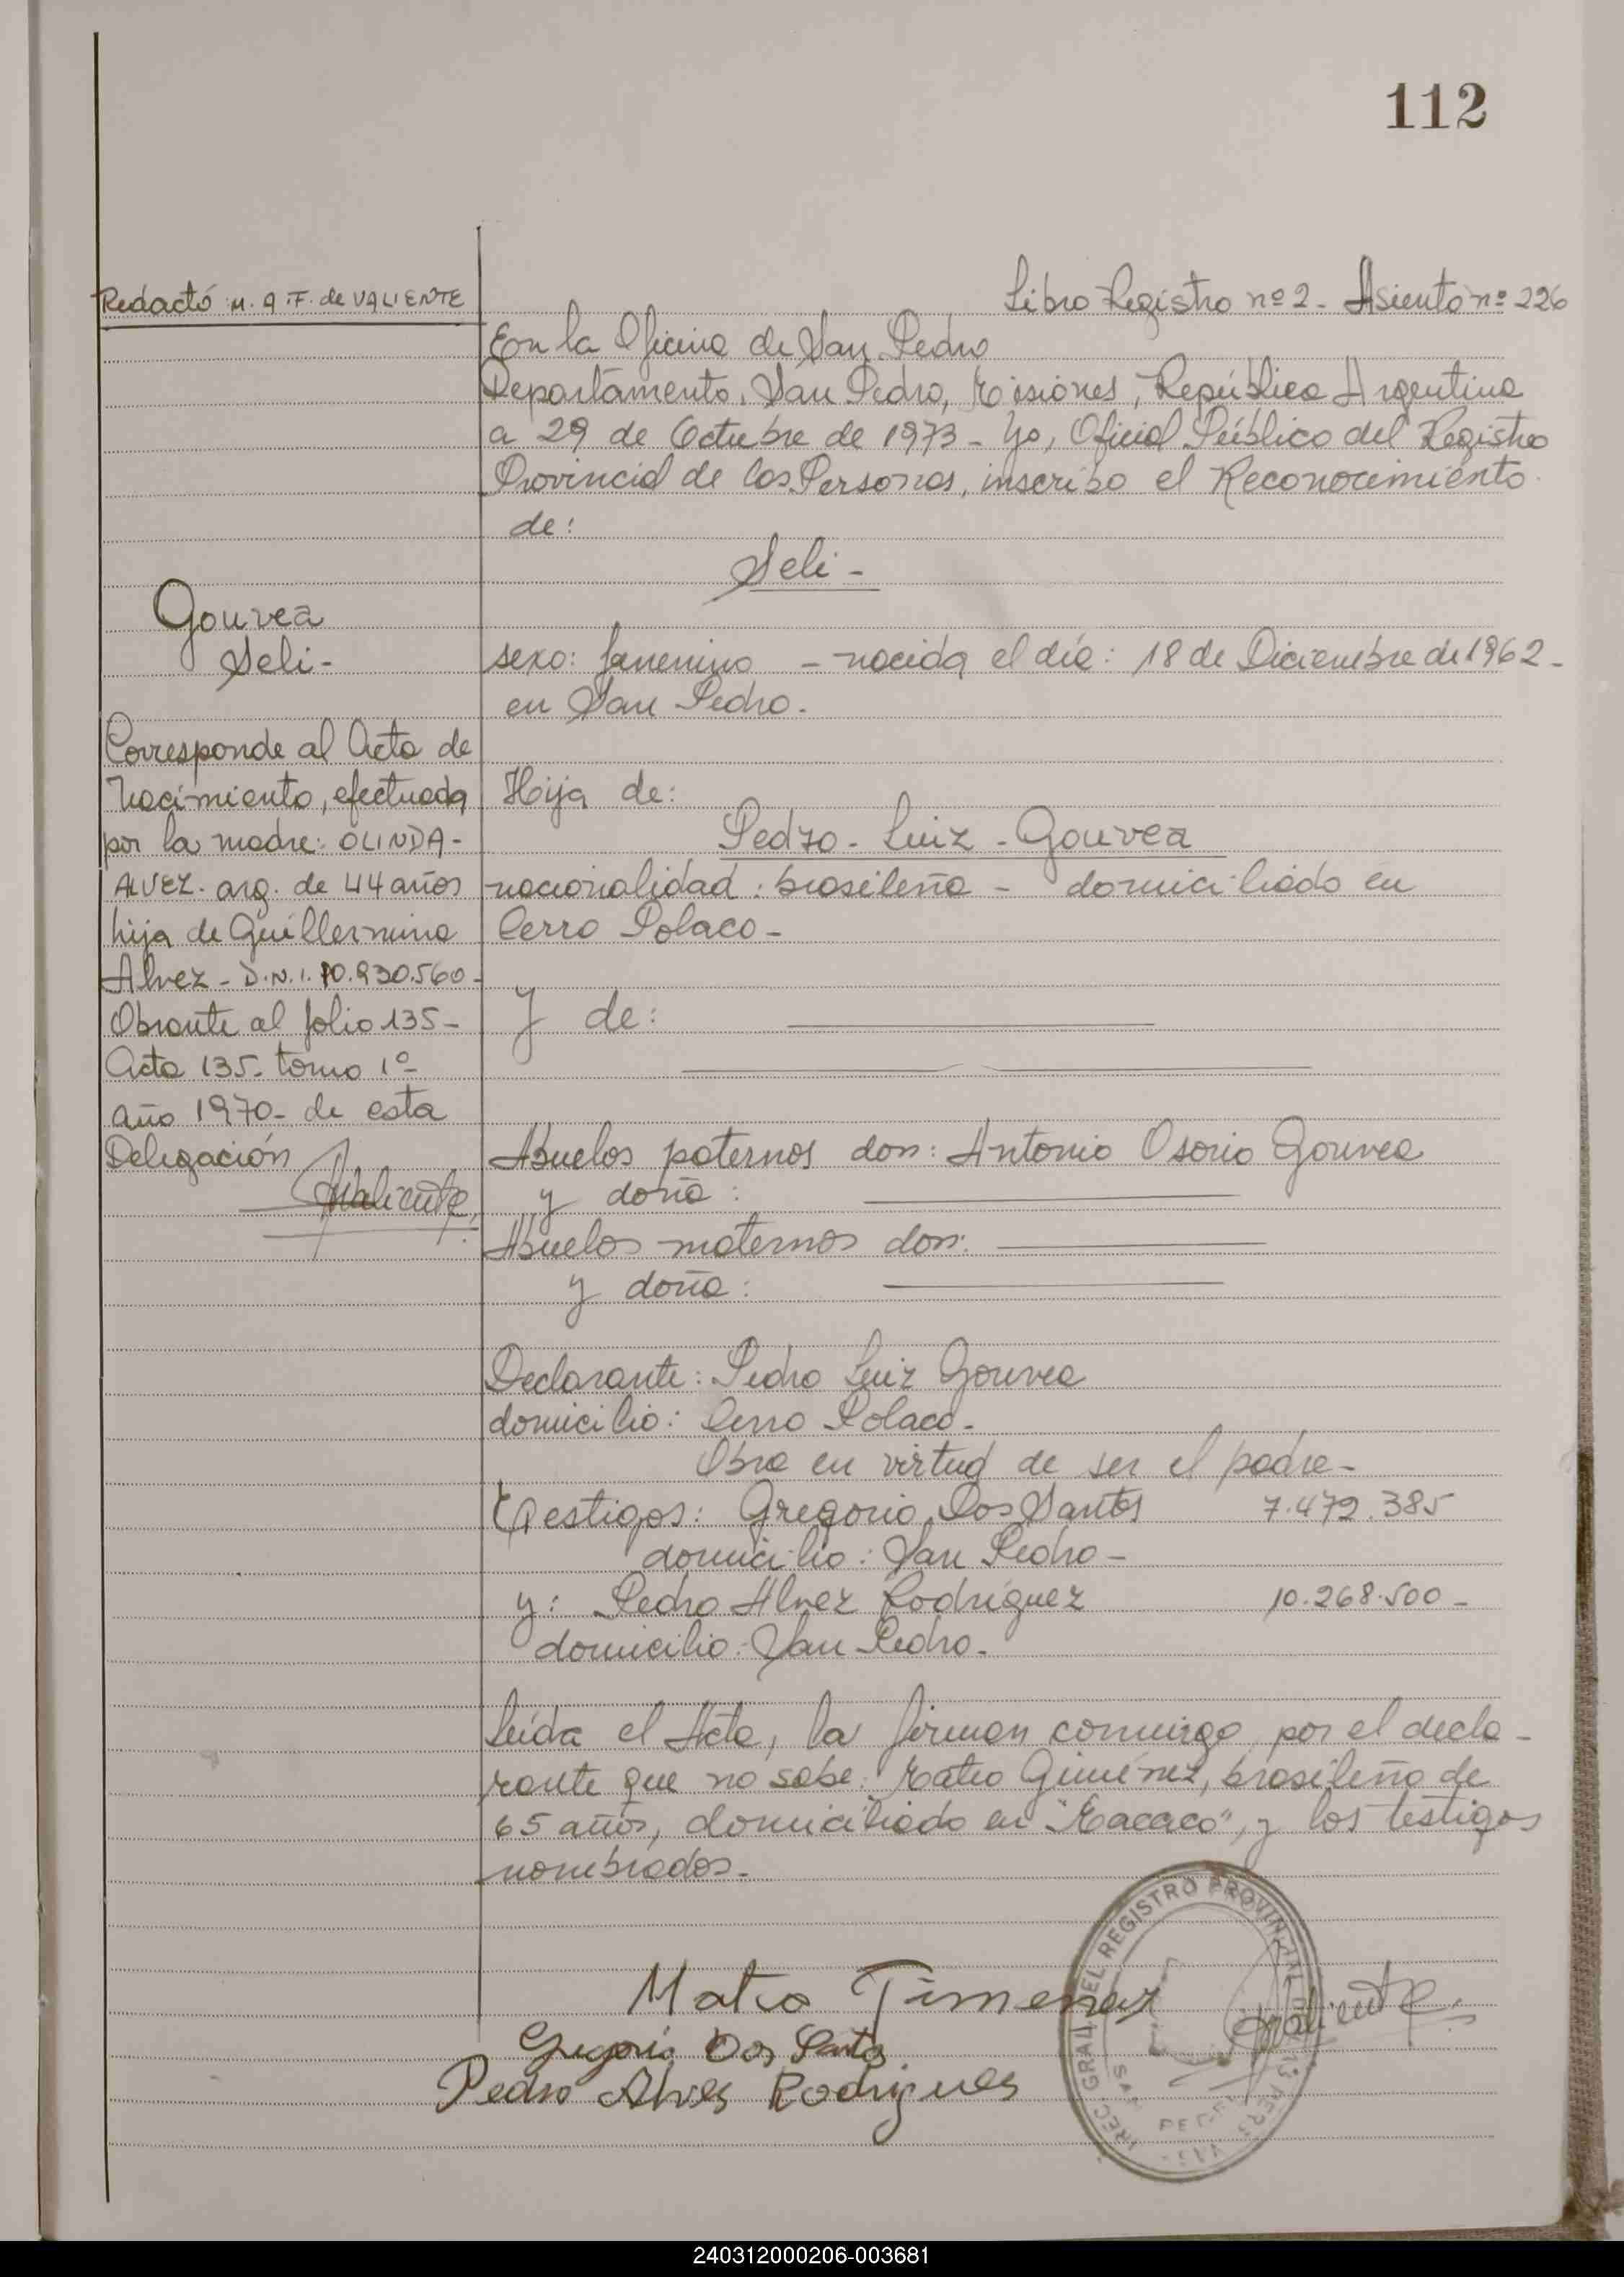 112
Redactó: M. A. F. de VALIENTE
Libro Registro nº 2 - Asiento nº 226
En la Oficina de San Pedro
Departamento, San Pedro, Misiones, República Argentina
a 29 de Octubre de 1973 - Yo, Oficial Público del Registro
Provincial de las Personas, inscribo el Reconocimiento
de:
Seli -
Gouvea
Seli -
sexo: femenino - nacida el día: 18 de Diciembre de 1962 -
en San Pedro.
Corresponde al Acta de
Nacimiento, efectuada
por la madre: OLINDA -
ALVEZ - arg. de 44 años
hija de Guillermina
Alvez - D.N.I. 10.930.560 -
Obrante al folio 135 -
Acta 135 - tomo 1º -
año 1970 - de esta
Delegación
Hija de:
Pedro - Luiz - Gouvea
nacionalidad: brasileña - domiciliado en
Cerro Polaco -
Y de:
Abuelos paternos don: Antonio Osorio Gouvea
y doña:
Abuelos maternos don:
y doña:
Declarante: Pedro Luiz Gouvea
domicilio: Cerro Polaco -
Obra en virtud de ser el padre -
Testigos: Gregorio Dos Santos 7.472.385
domicilio: San Pedro -
y: Pedro Alvez Rodríguez 10.268.500 -
domicilio: San Pedro -
Leída el Acta, la firman conmigo, por el decla-
rante que no sabe: Mateo Giménez, brasileño de
65 años, domiciliado en "Macaco", y los testigos
nombrados -
Mateo Timenez
Gregorio Dos Santos
Pedro Alves Rodrigues
REGISTRO PROVINCIAL
240312000206-003681